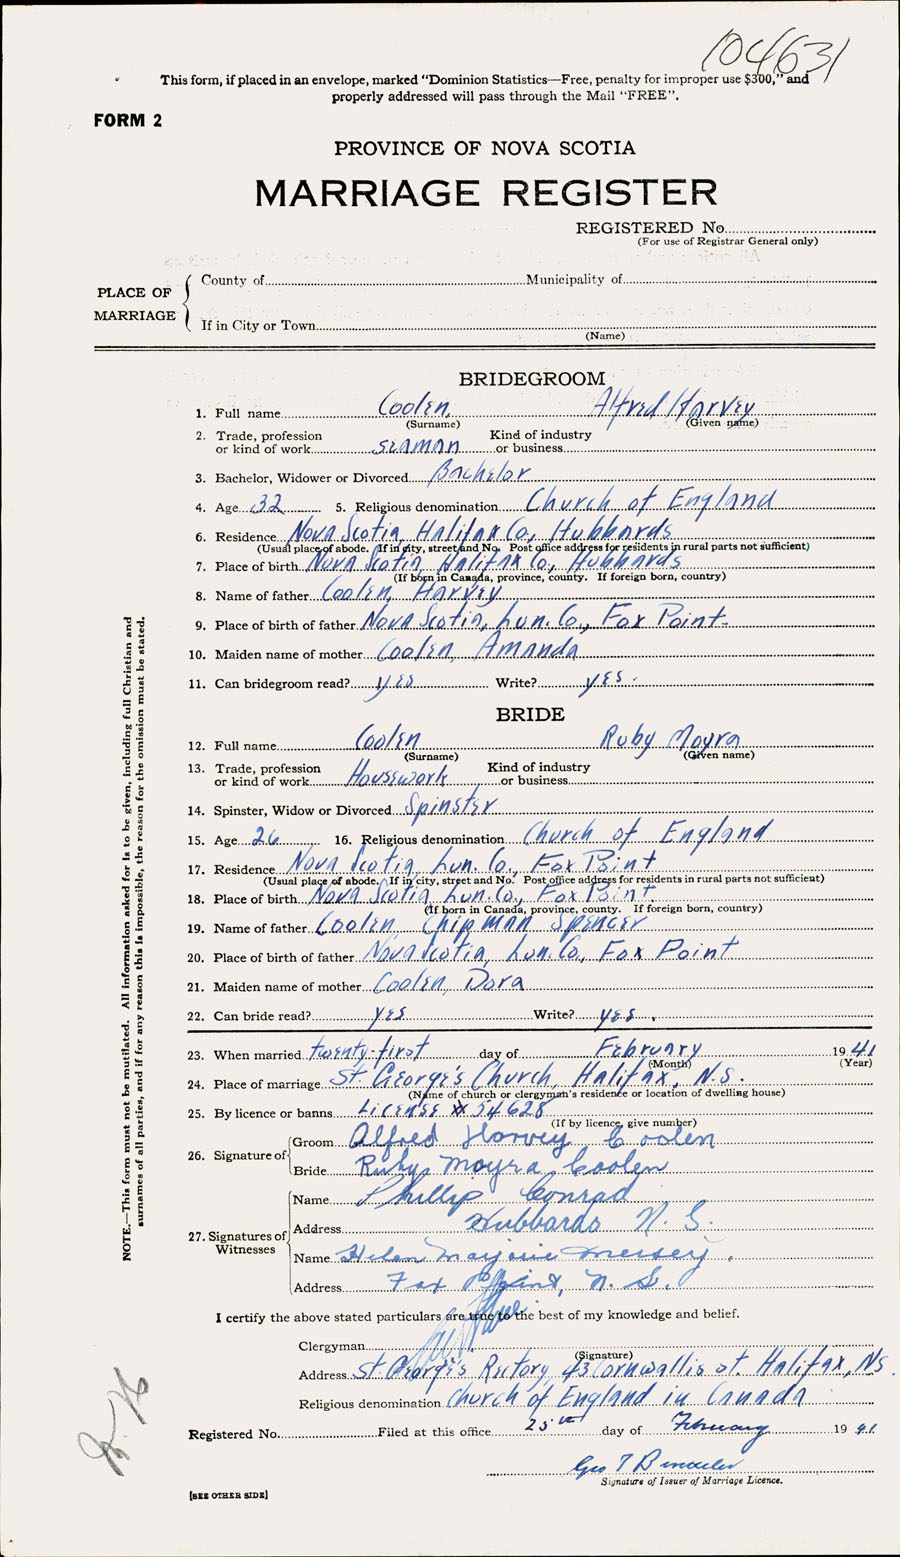 104631
This form, if placed in an envelope, marked "Dominion Statistics—Free, penalty for improper use $300," and
properly addressed will pass through the Mail "FREE".
FORM 2
PROVINCE OF NOVA SCOTIA
MARRIAGE REGISTER
REGISTERED No.
(For use of Registrar General only)
PLACE OF MARRIAGE
County of Municipality of
If in City or Town
(Name)
BRIDEGROOM
1. Full name Coolen, Alfred Harvey
(Surname) (Given name)
2. Trade, profession or kind of work seaman Kind of industry or business
3. Bachelor, Widower or Divorced Bachelor
4. Age 32 5. Religious denomination Church of England
6. Residence Nova Scotia, Halifax Co., Hubbards
(Usual place of abode. If in city, street and No. Post office address for residents in rural parts not sufficient)
7. Place of birth Nova Scotia, Halifax Co., Hubbards
(If born in Canada, province, county. If foreign born, country)
8. Name of father Coolen, Harvey
9. Place of birth of father Nova Scotia, Lun. Co., Fox Point.
10. Maiden name of mother Coolen, Amanda
11. Can bridegroom read? yes Write? yes.
BRIDE
12. Full name Coolen Ruby Moyra
(Surname) (Given name)
13. Trade, profession or kind of work Housework Kind of industry or business
14. Spinster, Widow or Divorced Spinster
15. Age 26 16. Religious denomination Church of England
17. Residence Nova Scotia, Lun. Co., Fox Point
(Usual place of abode. If in city, street and No. Post office address for residents in rural parts not sufficient)
18. Place of birth Nova Scotia, Lun. Co., Fox Point.
(If born in Canada, province, county. If foreign born, country)
19. Name of father Coolen, Chipman Spencer
20. Place of birth of father Nova Scotia, Lun. Co., Fox Point
21. Maiden name of mother Coolen, Dora
22. Can bride read? yes Write? yes.
23. When married twenty-first day of February 1941
(Month) (Year)
24. Place of marriage St. George's Church, Halifax, N.S.
(Name of church or clergyman's residence or location of dwelling house)
25. By licence or banns License # 54628
(If by licence, give number)
26. Signature of Groom Alfred Harvey Coolen
Bride Ruby Moyra Coolen
27. Signatures of Witnesses
Name Phillip Conrad
Address Hubbards N. S.
Name Helen Marjorie
Address Fox Point, N. S.
I certify the above stated particulars are true to the best of my knowledge and belief.
Clergyman
(Signature)
Address St. George's Rectory, 43 Cornwallis st. Halifax, NS.
Religious denomination Church of England in Canada
Registered No. Filed at this office 25th day of February 1941
Geo T
Signature of Issuer of Marriage Licence.
[SEE OTHER SIDE]
NOTE.—This form must not be mutilated. All information asked for is to be given, including full Christian and
surnames of all parties, and if for any reason this is impossible, the reason for the omission must be stated.